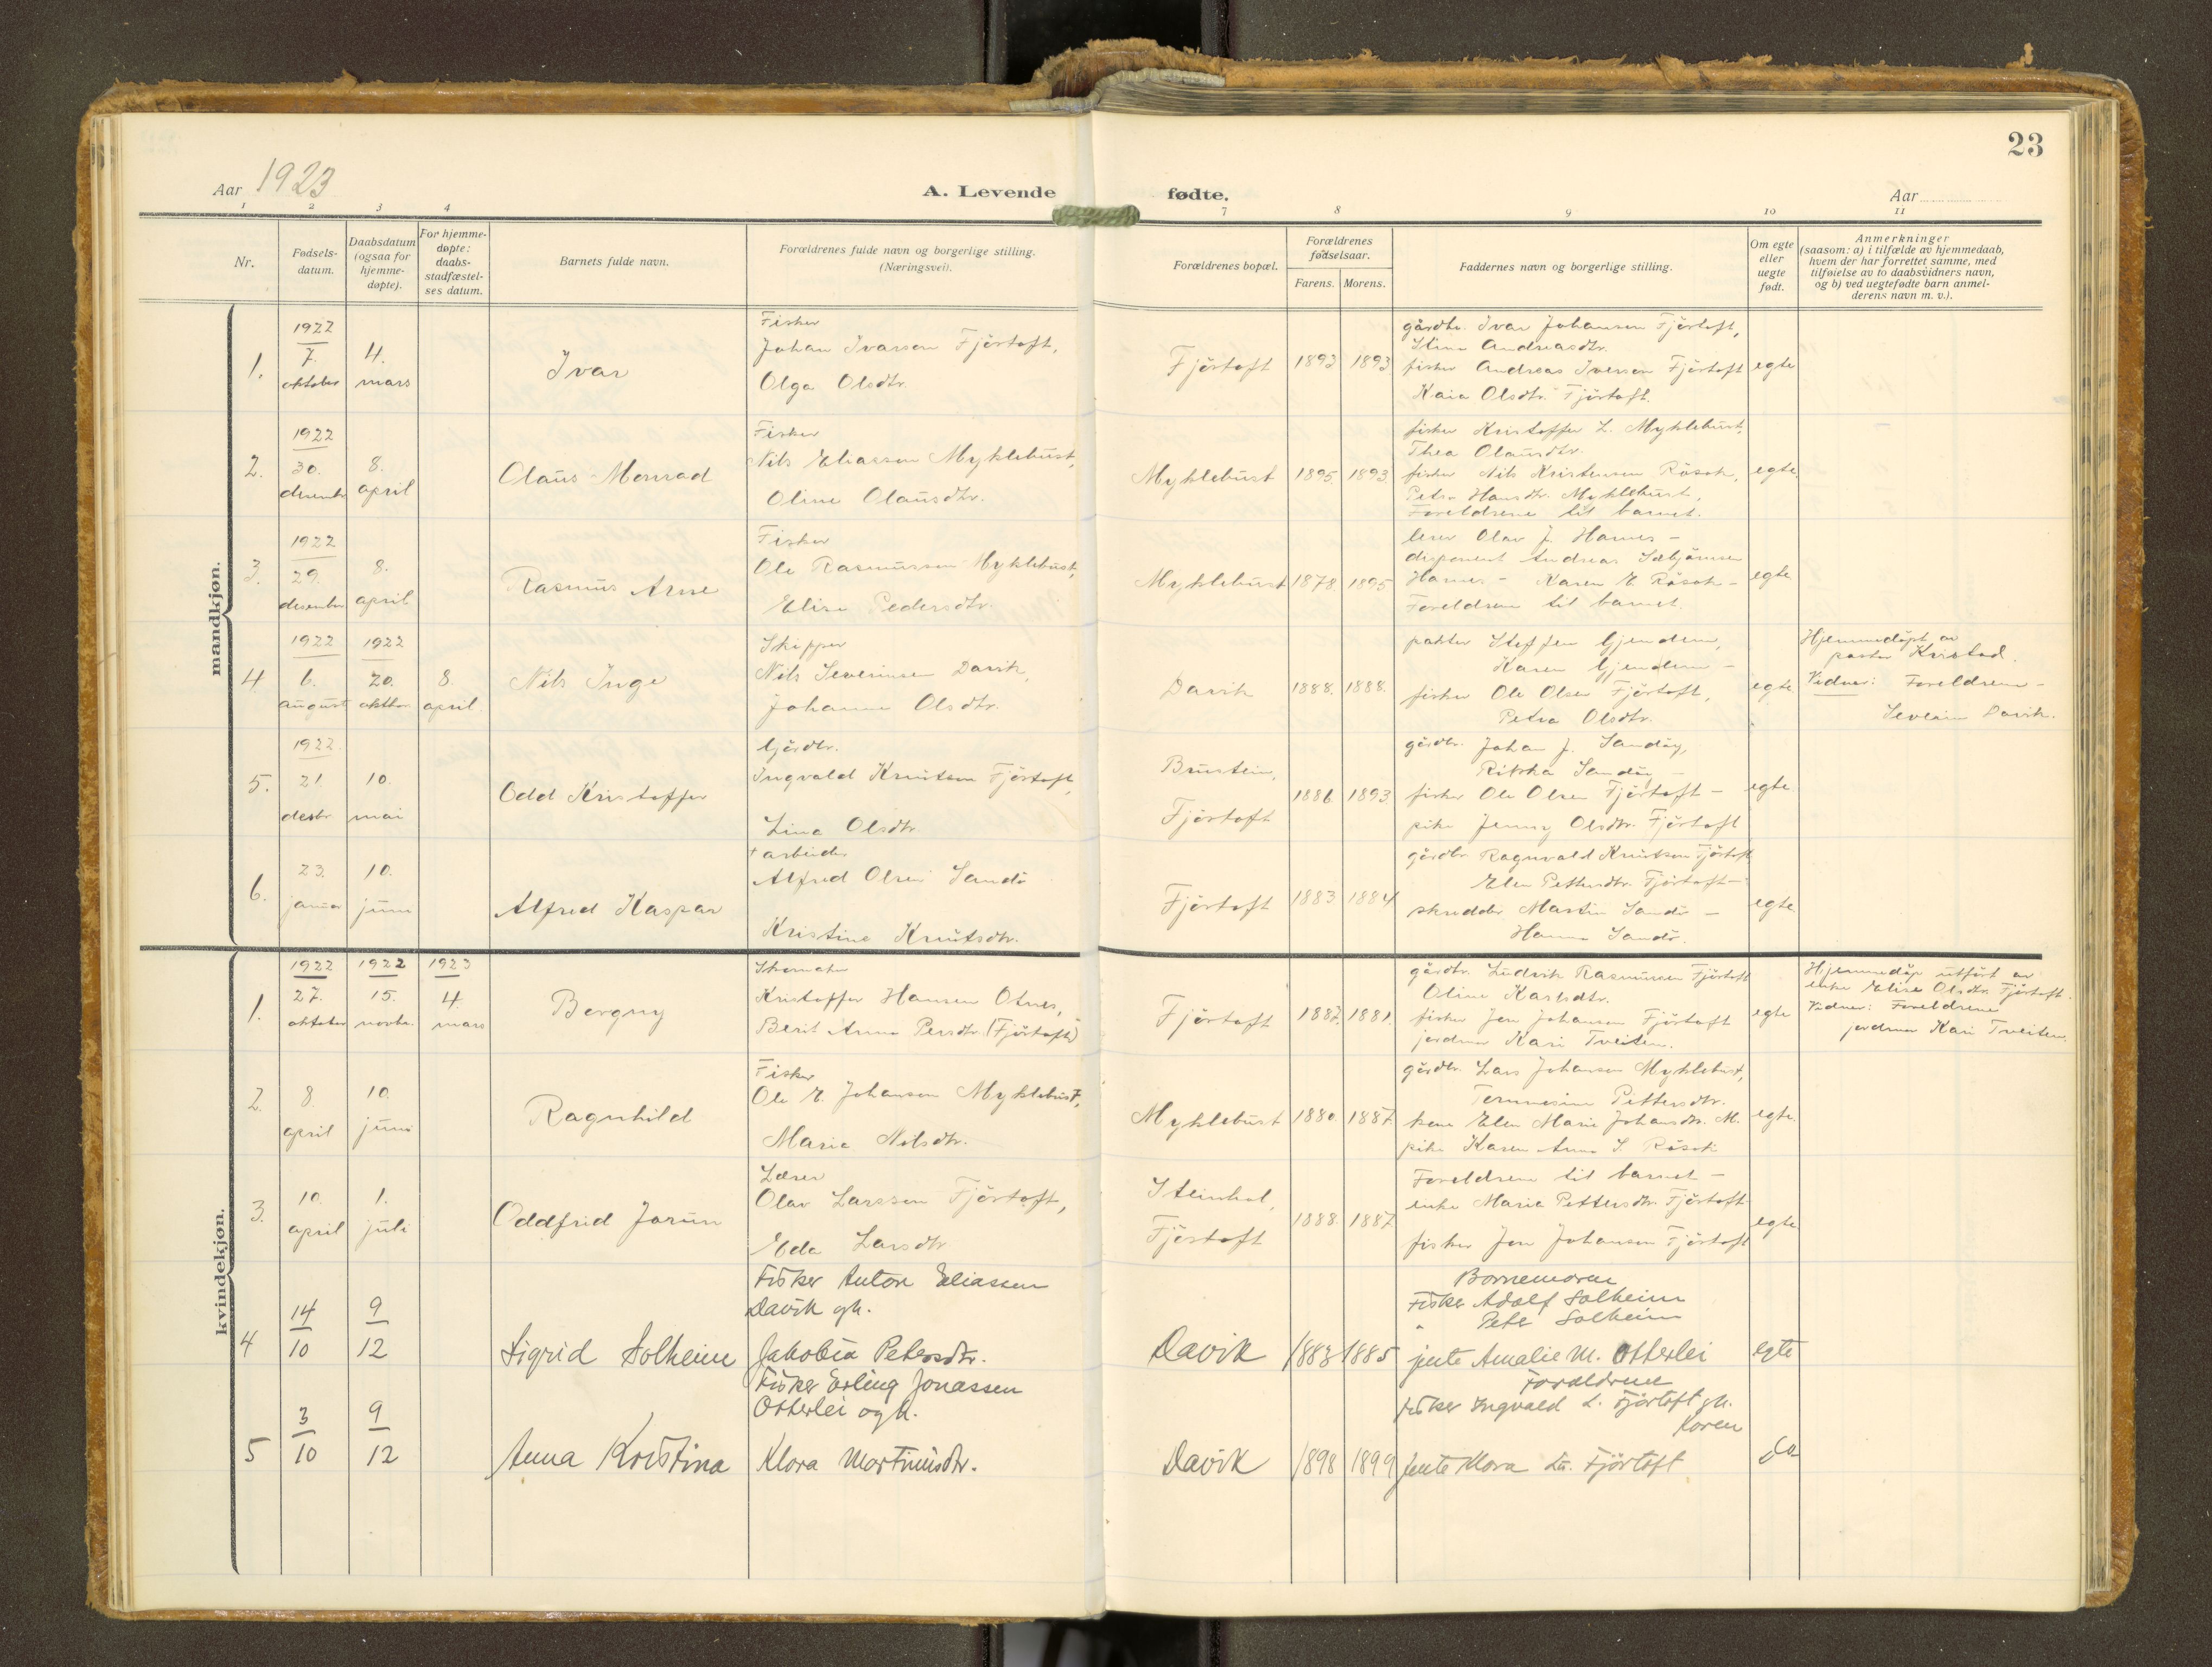 23
Aar 1923
A. Levende fødte.
Aar
1 2 3 4 7 8 9 10 11
Nr.
Fødsels-
datum.
Daabsdatum
(ogsaa for
hjemme-
døpte).
For hjemme-
døpte:
daabs-
stadfæstel-
ses datum.
Barnets fulde navn.
Forældrenes fulde navn og borgerlige stilling.
(Næringsvei).
Forældrenes bopæl.
Forældrenes
fødselsaar.
Farens. Morens.
Faddernes navn og borgerlige stilling.
Om egte
eller
uegte
født.
Anmerkninger
(saasom: a) i tilfælde av hjemmedaab,
hvem der har forrettet samme, med
tilføielse av to daabsvidners navn,
og b) ved uegtefødte barn anmel-
derens navn m. v.).
mandkjøn.
1.
1922
7.
oktober
4.
mars
Ivar
Fisker
Johan Ivarsen Fjörtoft,
Olga Olsdtr.
Fjörtoft
1893 1893
gårdbr. Ivar Johansen Fjörtoft,
Stina Andreasdtr.
fisker Andreas Iversen Fjörtoft
Kaia Olsdtr. Fjörtoft.
egte
2.
1922
30.
desembr
8.
april
Olaus Monrad
Fisker
Nils Eliassen Myklebust,
Oline Olausdtr.
Myklebust
1895. 1893.
fisker Kristoffer L. Myklebust,
Thea Olausdtr.
fisker Nils Kristensen Rösok,
Petra Hansdtr. Myklebust,
Foreldrene til barnet.
egte.
3.
1922
29.
desember
8.
april
Rasmus Arne
Fisker
Ole Rasmussen Myklebust,
Elise Pedersdtr.
Myklebust
1878. 1895
lærer Olav J. Hanes -
disponent Andreas Sæbjörnsen
Hanes - Karen E. Rösok -
Foreldrene til barnet.
egte
4.
1922
6.
august
1922
20.
oktbr
8.
april.
Nils Inge
Skipper
Nils Severinsen Davik,
Johanna Olsdtr.
Davik
1888. 1888.
pakter Steffen Gjendem,
Karen Gjendem -
fisker Ole Olsen Fjörtoft,
Petra Olsdtr.
egte.
Hjemmedöpt av
pastor Kristad.
Vidner: Foreldrene -
Severin Davik.
5.
1922.
21
desbr
10.
mai
Odd Kristoffer
Gårdbr.
Ingvald Knutsen Fjörtoft,
Lina Olsdtr.
Brustein,
Fjörtoft
1886 1893.
gårdbr. Johan J. Sandöy,
Rikka Sandöy -
fisker Ole Olsen Fjörtoft -
pike Jenny Olsdtr. Fjörtoft
egte.
6.
23.
januar
10.
juni
Alfred Kaspar
arbeider
Alfred Olsen Sandö
Kristine Knutsdtr.
Fjörtoft
1883 1884
gårdbr. Ragnvald Knutsen Fjörtoft
Elen Pettersdtr. Fjörtoft -
skredder Martin Sandö -
Hanna Sandö.
egte.
kvindekjøn.
1.
1922
27.
oktober
1922
15.
novbr.
1923
4.
mars
Borgny
Skomaker
Kristoffer Hansen Otnes,
Berit Anna Persdtr. (Fjörtoft)
Fjörtoft
1887. 1881.
gårdbr. Ludvik Rasmussen Fjörtoft
Oline Karlsdtr.
fisker Jon Johansen Fjörtoft
jordmor Kari Tveiten.
egte
Hjemmedöp utfört av
enke Elise Olsdtr. Fjörtoft.
Vidner: Foreldrene
jordmor Kari Tveiten.
2.
8.
april
10.
juni
Ragnhild
Fisker
Ole E. Johansen Myklebust,
Maria Nilsdtr.
Myklebust
1880. 1887.
gårdbr. Lars Johansen Myklebust,
Pettersdtr.
kone Elen Marie Johansdtr. M.
pike Karen Anna S. Rösok
egte.
3.
10.
april
1.
juli
Oddfrid Jorun
Lærer
Olav Larssen Fjörtoft,
Eda Larsdtr.
Steinhol,
Fjörtoft
1888. 1887.
Foreldrene til barnet -
enke Maria Pettersdtr. Fjörtoft
fisker Jon Johansen Fjörtoft
egte
4
14
10
9
12
Sigrid Solheim
Fisker Anton Eliassen
Davik gh.
Jakobia Petersdtr.
Davik
1883 1885
Barnemoren
Fisker Adolf Solheim
" Peter Solheim
jente Amalie M. Otterlei
egte
5
3
10
9
12
Anna Kristina
Fisker Erling Jonassen
Otterlei og h.
Klara Martinusdtr.
Davik
1898 1899
Foreldrene
fisker Ingvald L. Fjörtoft gh.
Karen
jente Klara La. Fjörtoft
do